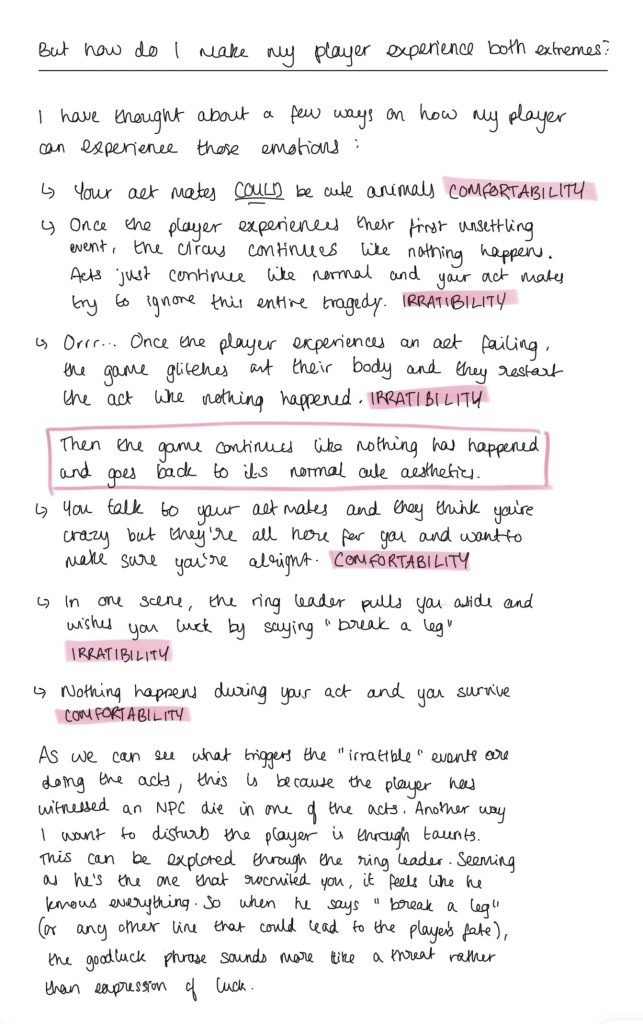 But how do I make my player experience both extremes?
I have thought about a few ways on how my player
can experience those emotions :
↳ Your act mates COULD be cute animals COMFORTABILITY
↳ Once the player experiences their first unsettling
event, the circus continues like nothing happens.
Acts just continue like normal and your act mates
try to ignore this entire tragedy. IRRATIBILITY
↳ Orrr... Once the player experiences an act failing,
the game glitches out their body and they restart
the act like nothing happened. IRRATIBILITY
Then the game continues like nothing has happened
and goes back to its normal cute aesthetics.
↳ You talk to your act mates and they think you're
crazy but they're all here for you and want to
make sure you're alright. COMFORTABILITY
↳ In one scene, the ring leader pulls you aside and
wishes you luck by saying "break a leg"
IRRATIBILITY
↳ Nothing happens during your act and you survive
COMFORTABILITY
As we can see what triggers the "irratible" events are
doing the acts, this is because the player has
witnessed an NPC die in one of the acts. Another way
I want to disturb the player is through taunts.
This can be explored through the ring leader. Seeming
as he's the one that recruited you, it feels like he
knows everything. So when he says "break a leg"
(or any other line that could lead to the player's fate),
the goodluck phrase sounds more like a threat rather
than expression of luck.